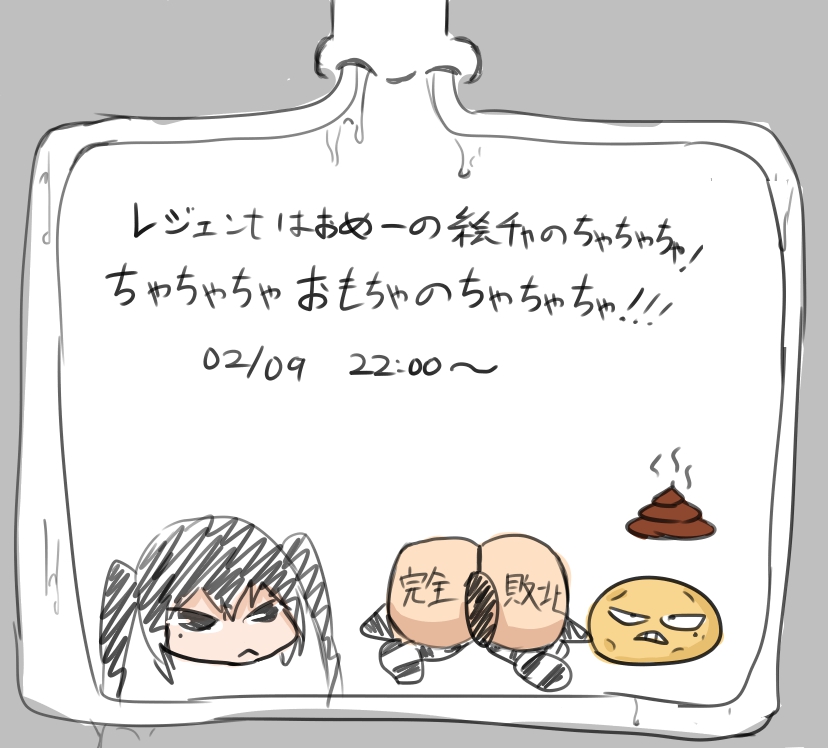 レジェンℓはぉめーの絵チャのちゃちゃちゃ!
ちゃちゃちゃ おもちゃのちゃちゃちゃ!!!
02/09 22:00〜
完全 敗北